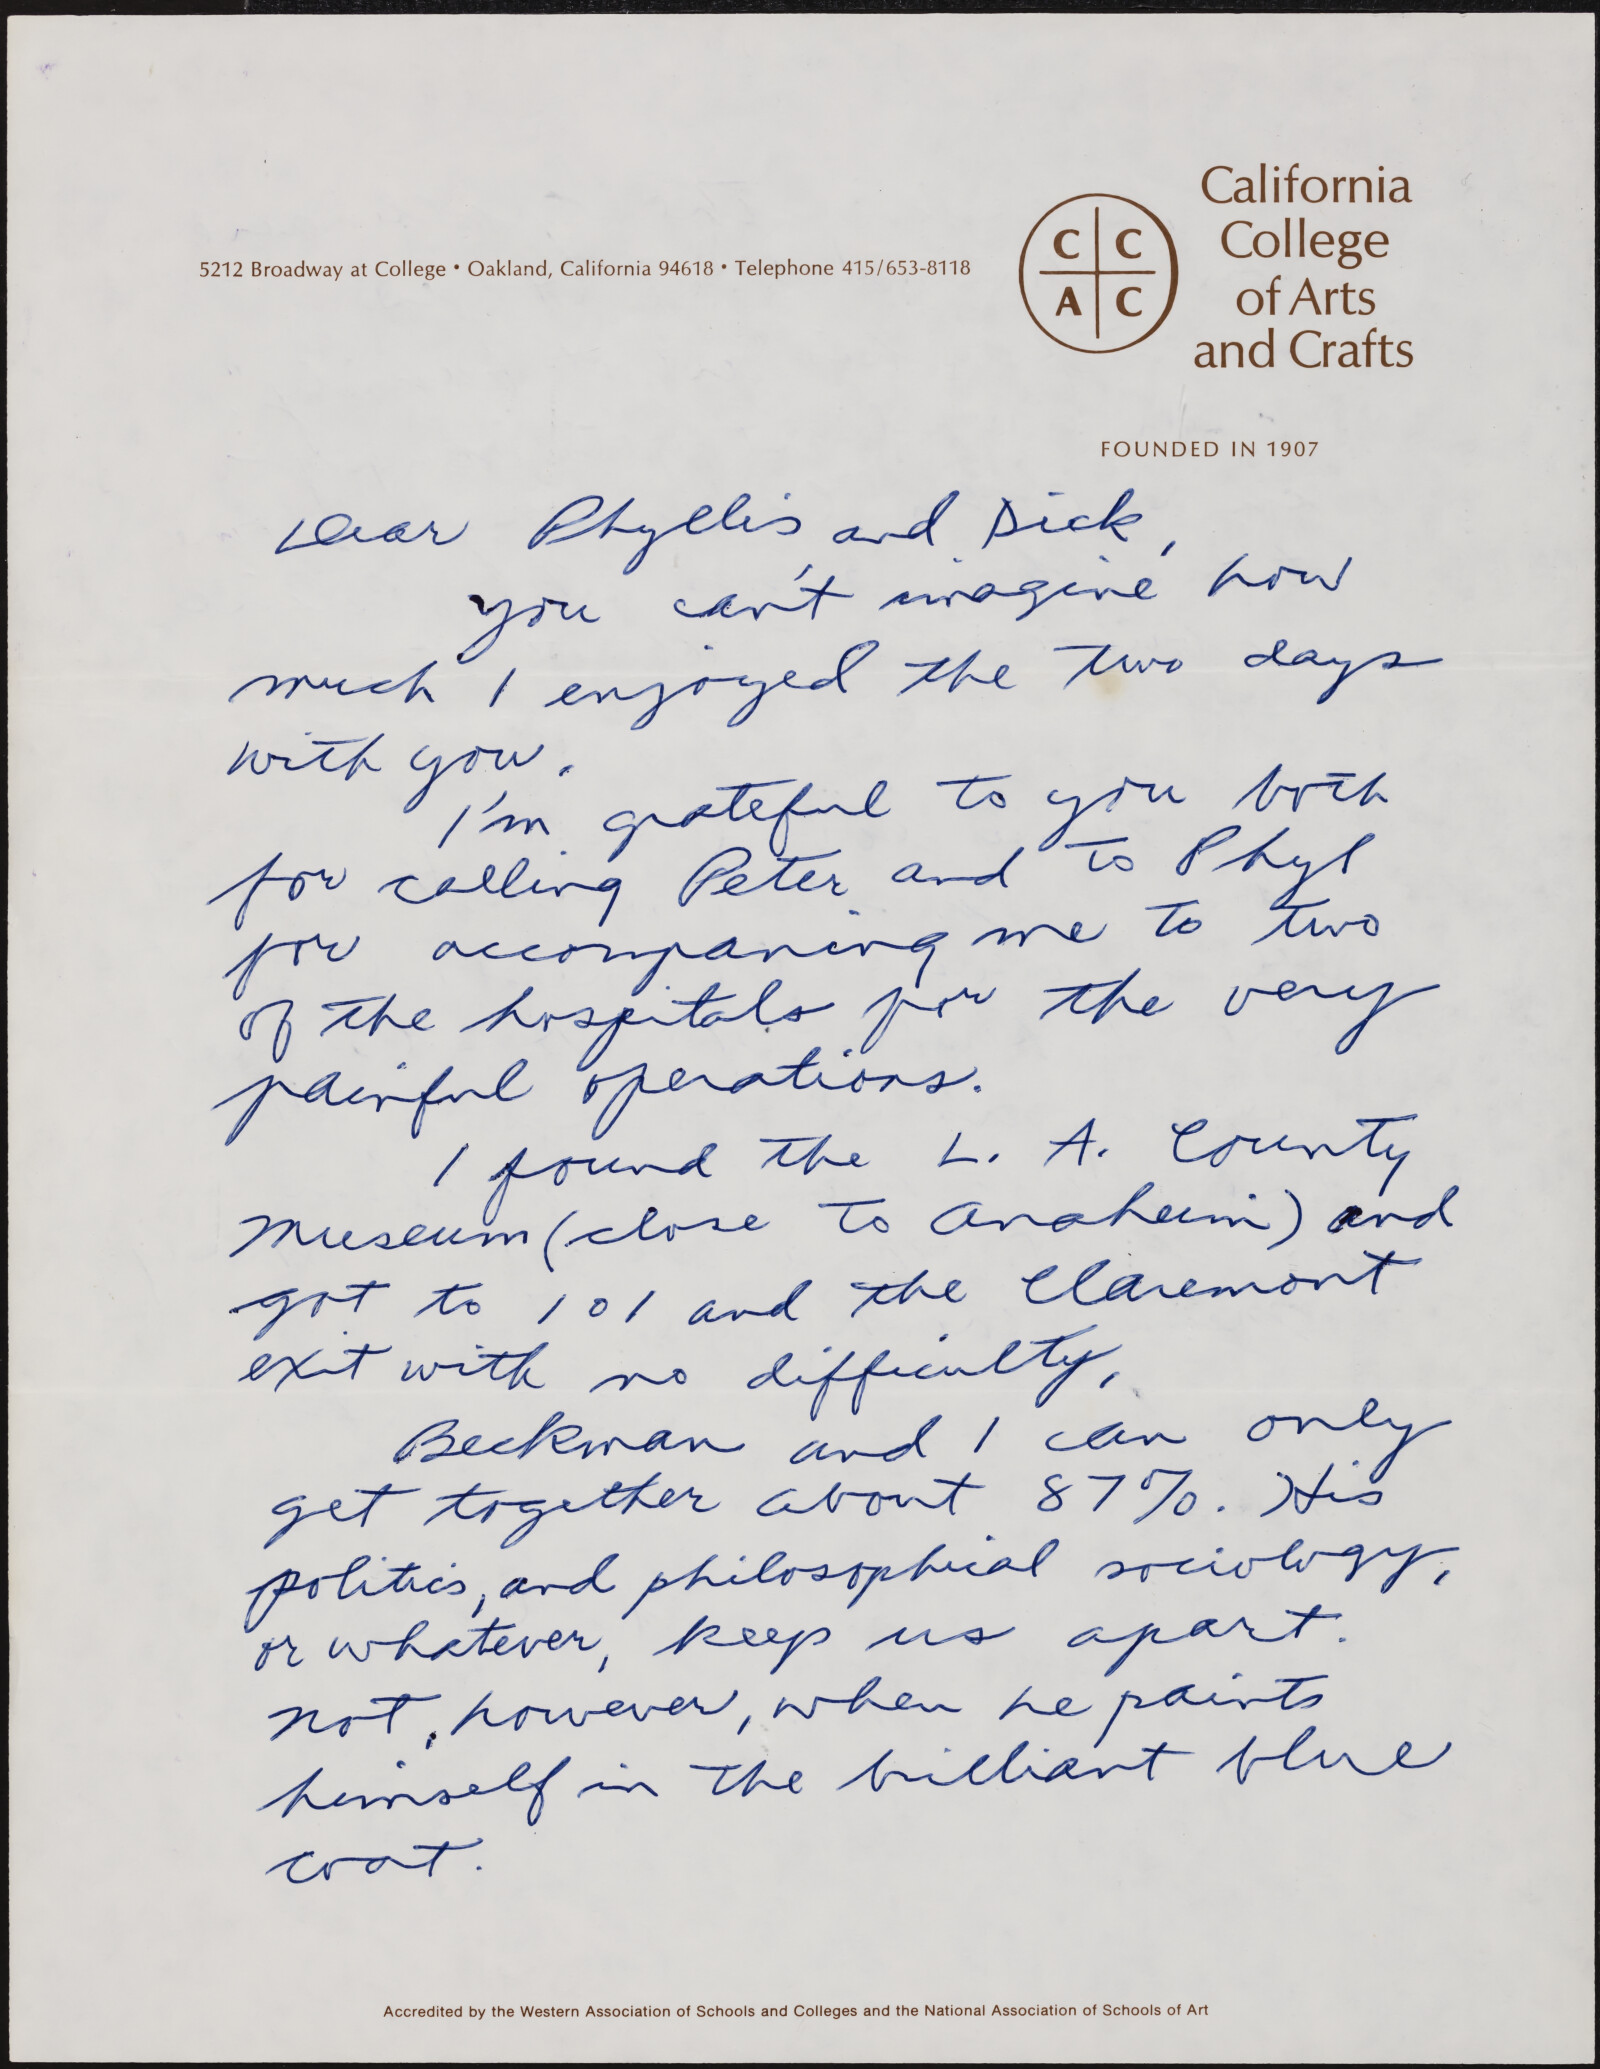 California
College
of Arts
and Crafts
C C
A C
5212 Broadway at College • Oakland, California 94618 • Telephone 415/653-8118
FOUNDED IN 1907
Dear Phyllis and Dick,
you can't imagine how
much I enjoyed the two days
with you.
I'm grateful to you both
for calling Peter and to Phyl
for accompaning me to two
of the hospitals for the very
painful operations.
I found the L. A. County
Museum (close to Anaheim) and
got to 101 and the Claremont
exit with no difficulty.
Beckman and I can only
get together about 87%. His
politics, and philosophical sociology,
or whatever, keep us apart.
Not, however, when he paints
himself in the brilliant blue
coat.
Accredited by the Western Association of Schools and Colleges and the National Association of Schools of Art